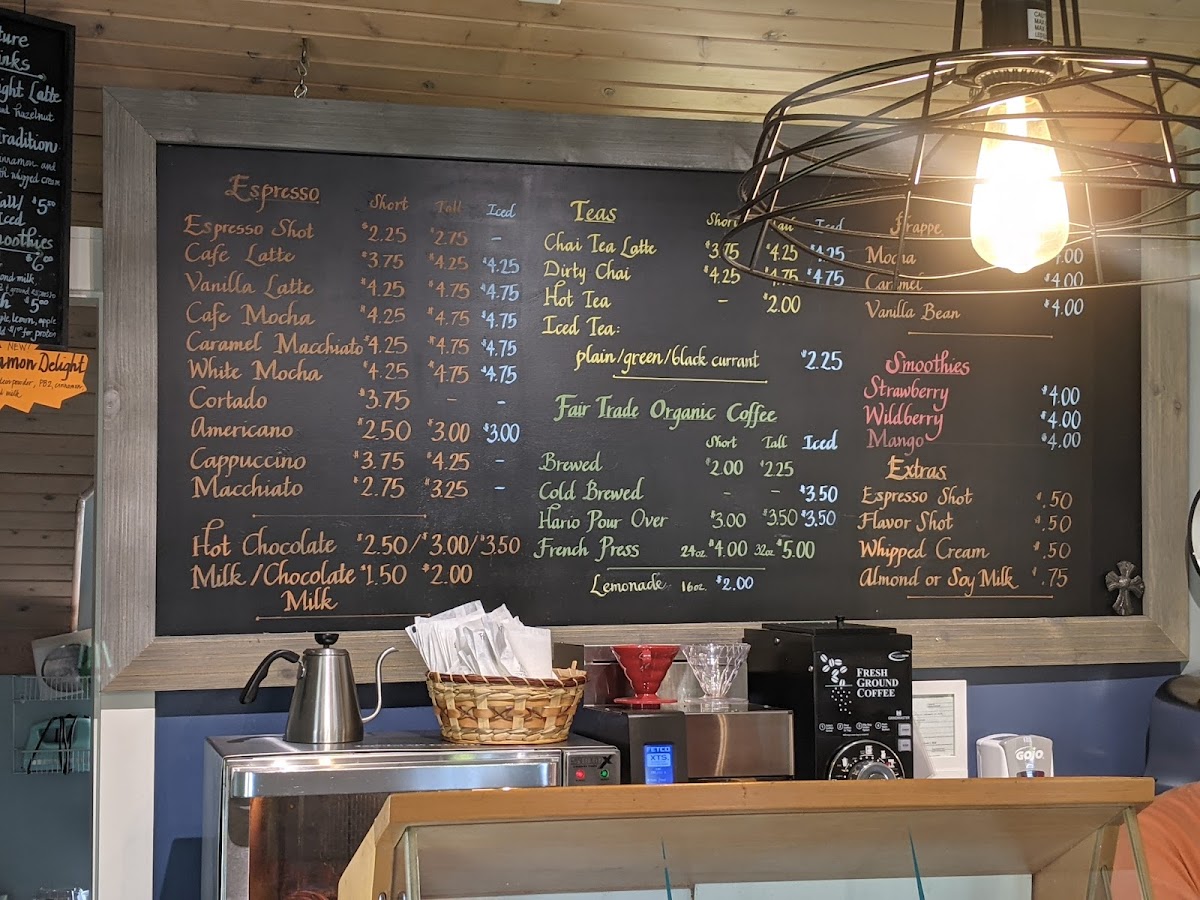 ture
nks
ght Latte
hazelnut
Tradition
innamon and
th whipped cream
all/ $5⁰⁰
Iced
moothies
$6⁰⁰
ond milk,
h $5⁰⁰
ple, lemon, apple
dd $1⁰⁰ for protein
NEW!
amon Delight
powder, PB2, cinnamon
milk
Espresso Short Tall Iced
Espresso Shot $2.25 $2.75 -
Cafe Latte $3.75 $4.25 $4.25
Vanilla Latte $4.25 $4.75 $4.75
Cafe Mocha $4.25 $4.75 $4.75
Caramel Macchiato $4.25 $4.75 $4.75
White Mocha $4.25 $4.75 $4.75
Cortado $3.75 - -
Americano $2.50 $3.00 $3.00
Cappuccino $3.75 $4.25 -
Macchiato $2.75 $3.25 -
Hot Chocolate $2.50/$3.00/$3.50
Milk/Chocolate $1.50 $2.00
Milk
Teas Short Tall Iced
Chai Tea Latte $3.75 $4.25 $4.25
Dirty Chai $4.25 $4.75 $4.75
Hot Tea - $2.00
Iced Tea:
plain/green/black currant $2.25
Fair Trade Organic Coffee
Short Tall Iced
Brewed $2.00 $2.25
Cold Brewed - - $3.50
Hario Pour Over $3.00 $3.50 $3.50
French Press 24oz $4.00 32oz $5.00
Lemonade 16oz. $2.00
Frappe
Mocha .00
Caramel $4.00
Vanilla Bean $4.00
Smoothies
Strawberry $4.00
Wildberry $4.00
Mango $4.00
Extras
Espresso Shot $.50
Flavor Shot $.50
Whipped Cream $.50
Almond or Soy Milk $.75
FETCO
XTS
FRESH
GROUND
COFFEE
GOJO